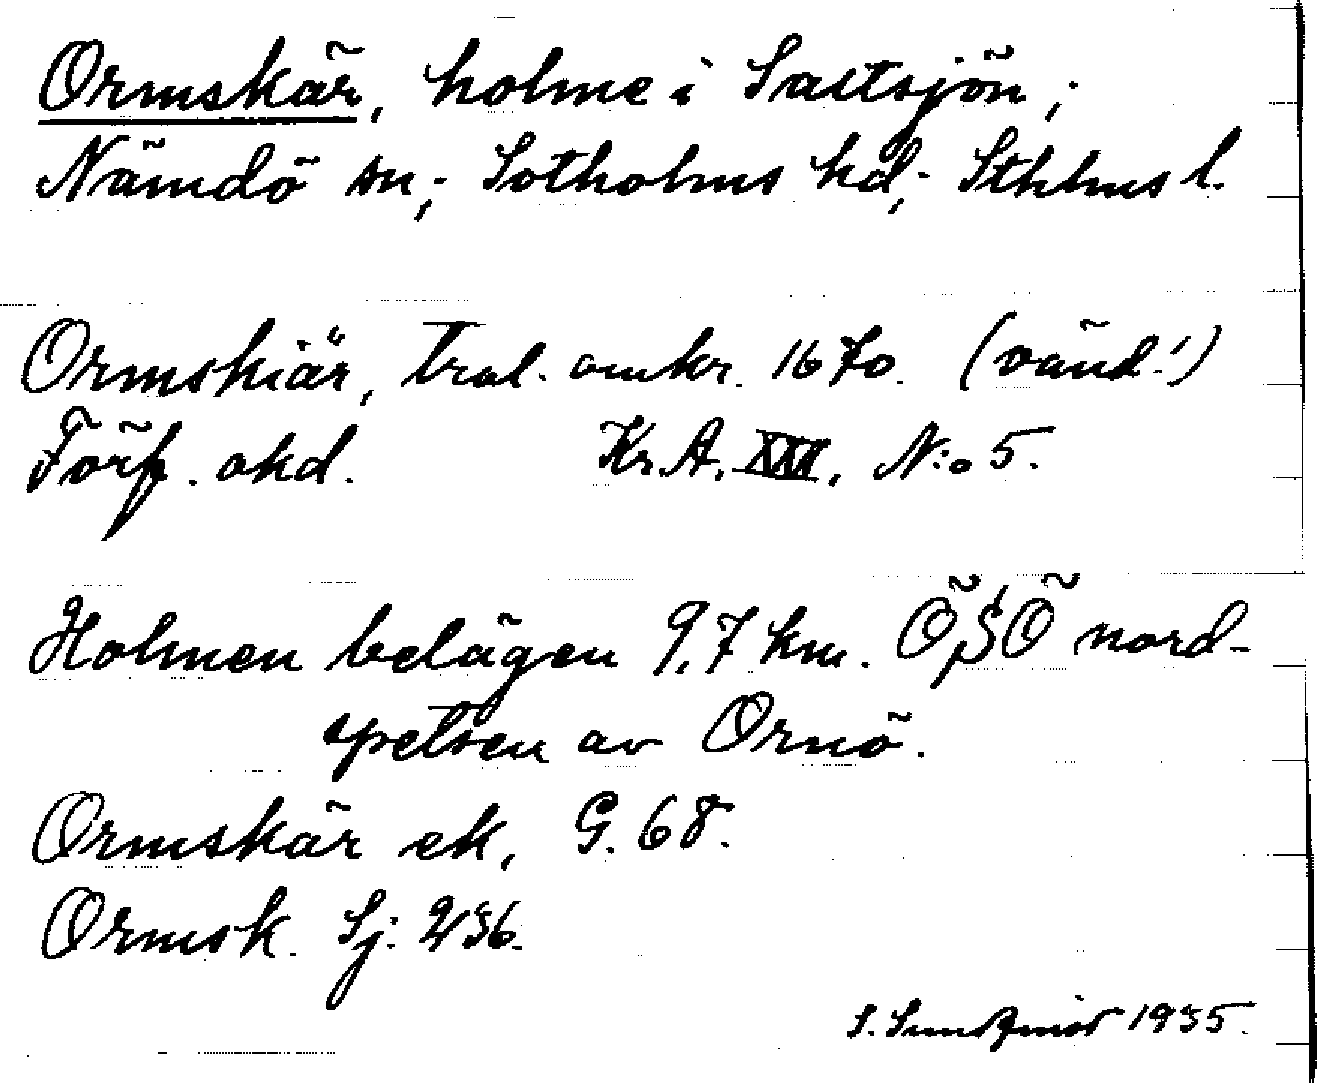 Ormskär, holme i Saltsjön;
Nämdö sn; Sotholms hd; Sthlms l.
Ormskiär, tral. omkr. 1670. (vänd!)
Förf. okd. Kr. A. XXII, N:o 5.
Holmen belägen 9,7 km. ÖSÖ nord-
spetsen av Ornö.
Ormskär ek, G. 68.
Ormsk. Sj. 236.
S. 1935.